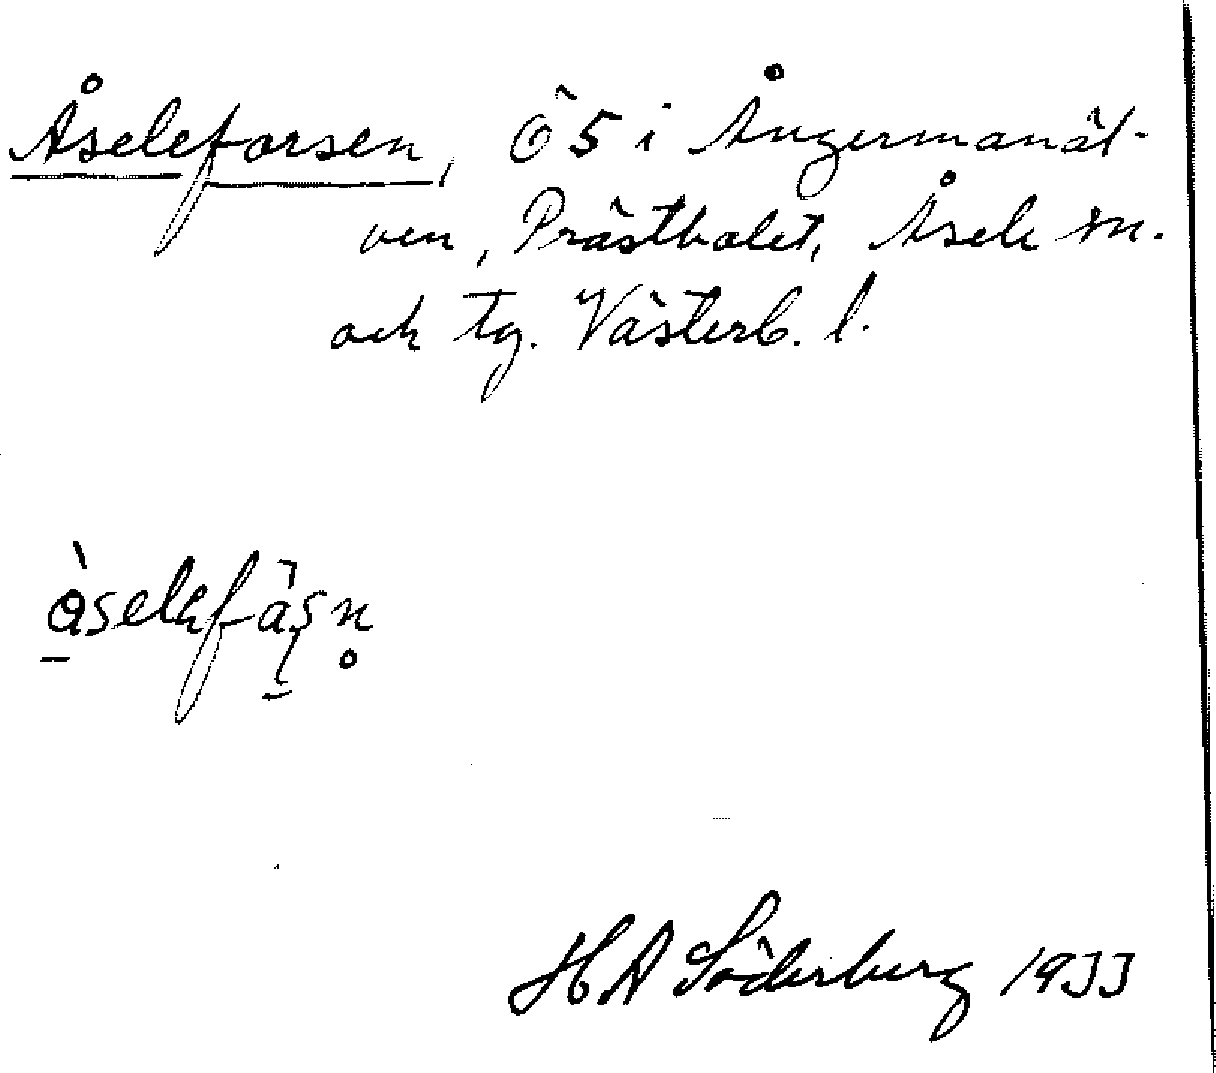 Åseleforsen, Ö 5 i Ångermanäl-
ven, Prästholet, Åsele sn.
och tg. Västerb. l.
H A Söderberg 1933